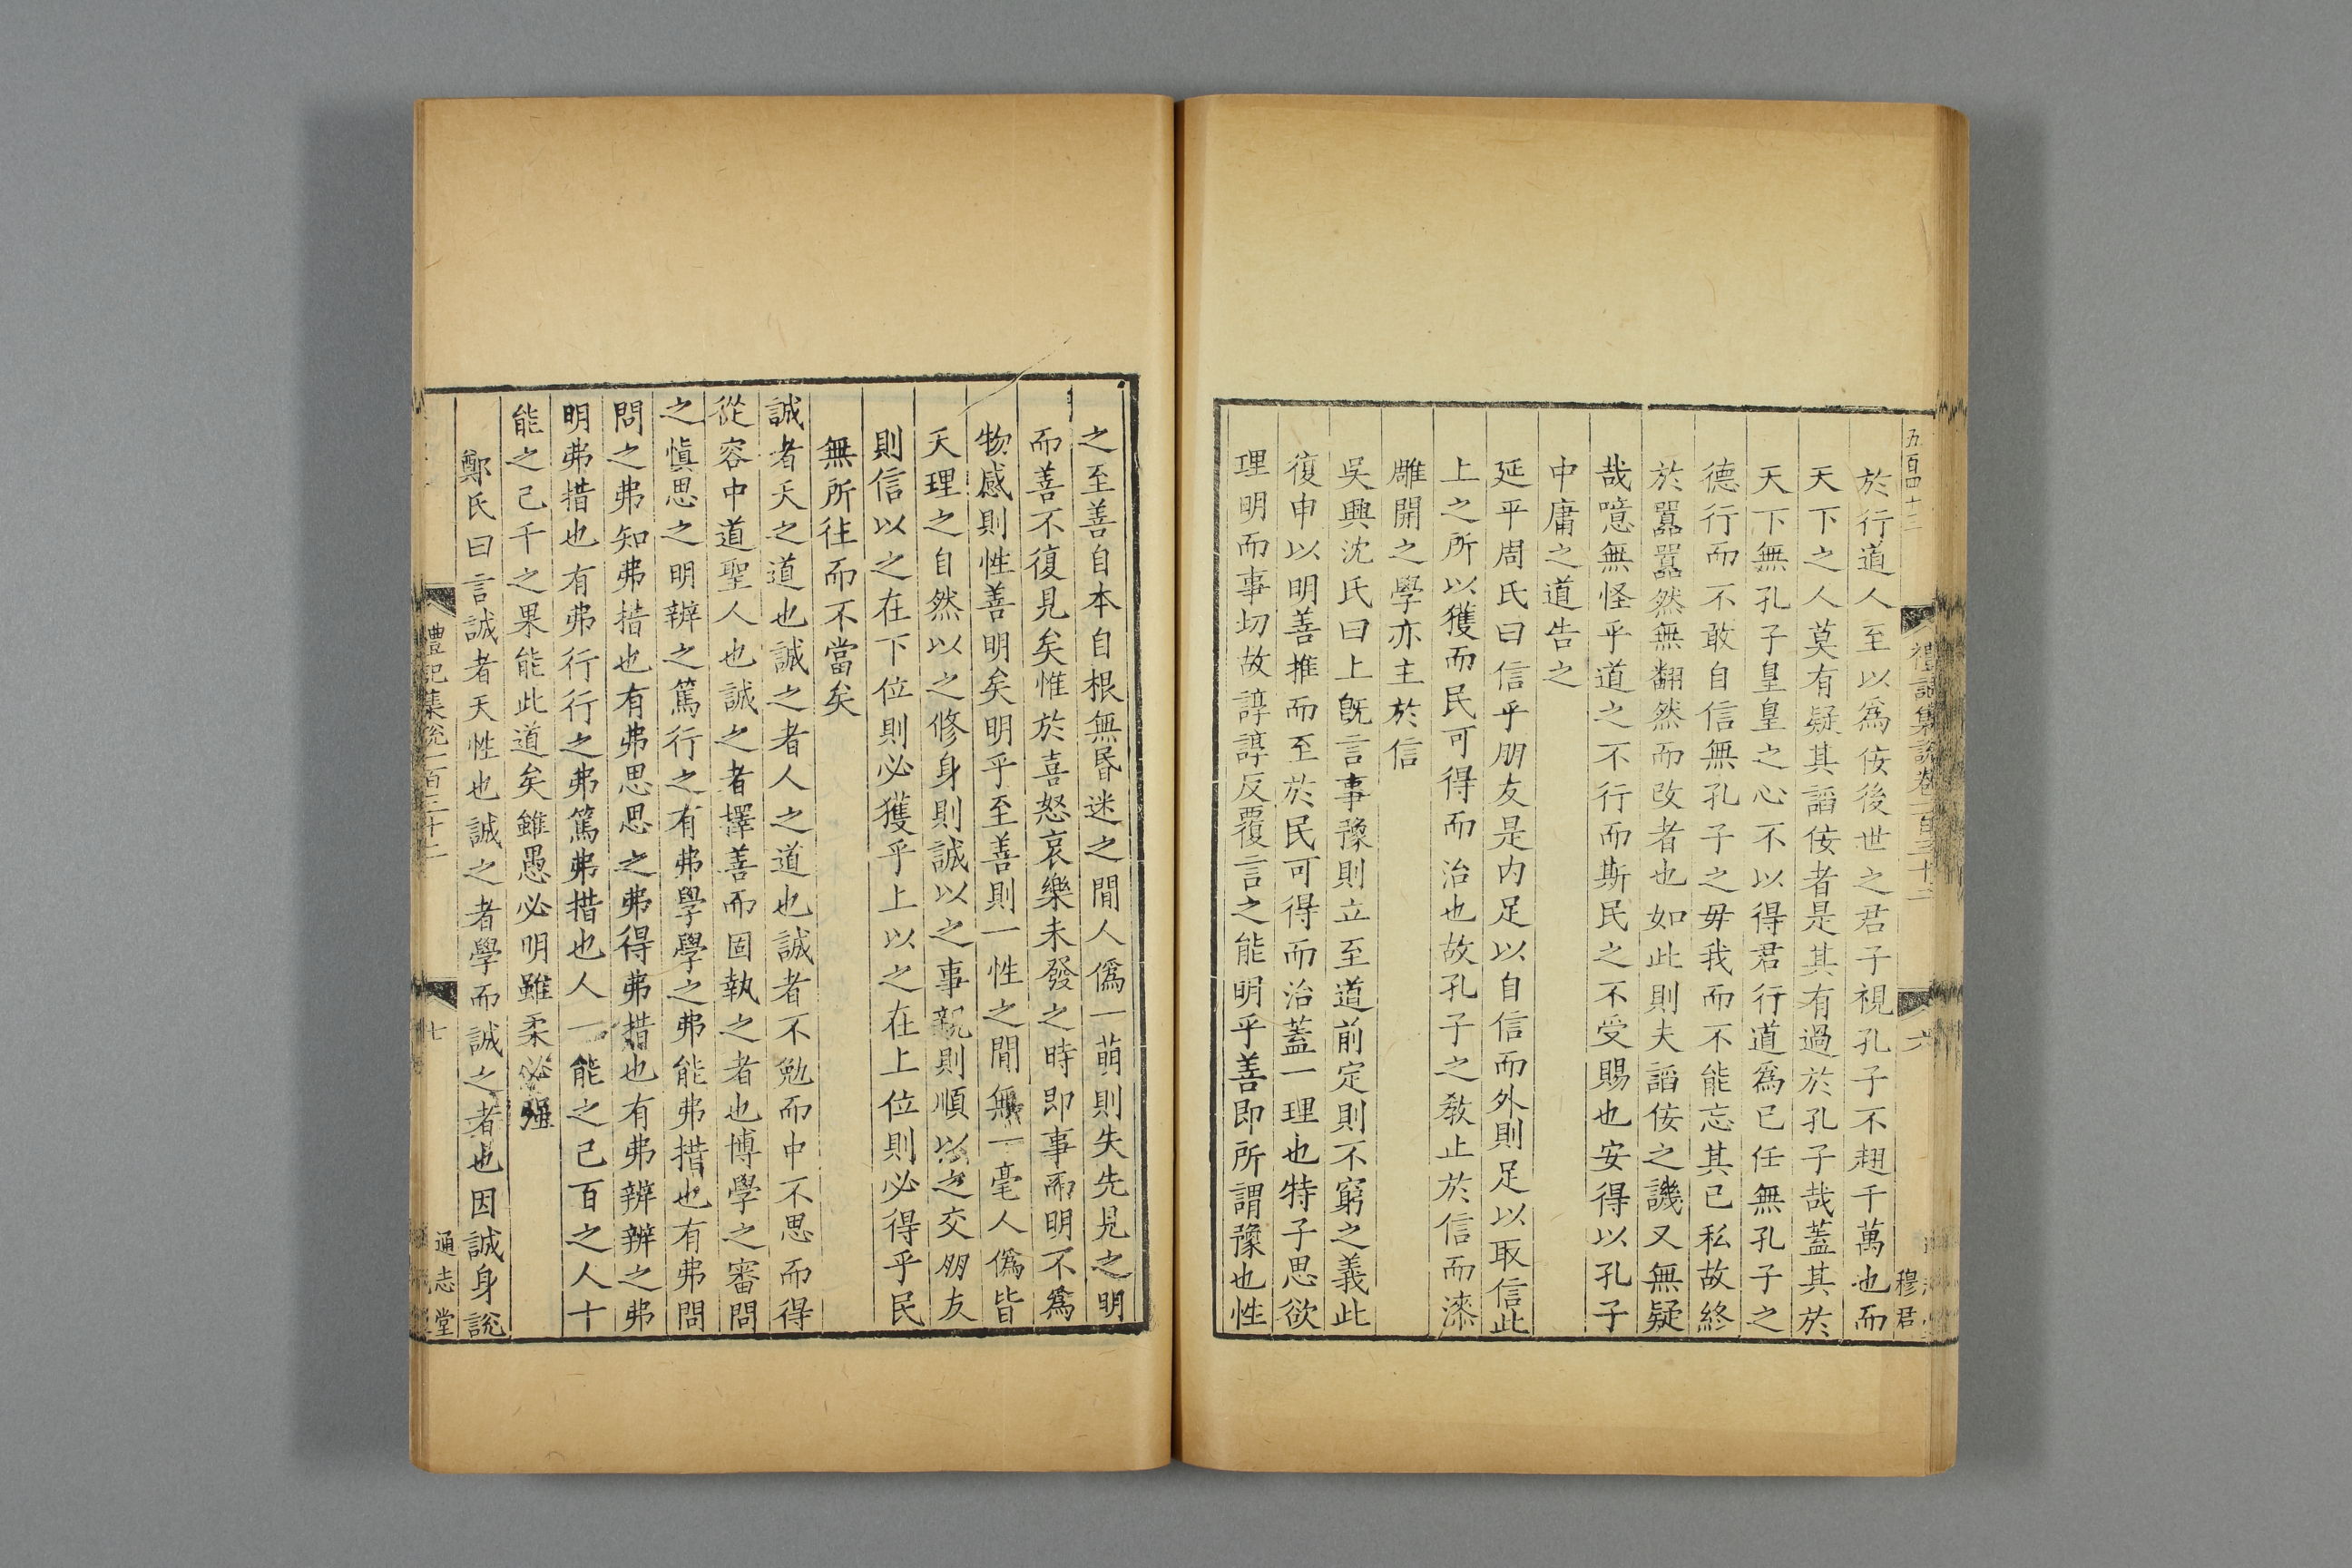 五百四十三
於行道人至以爲佞後世之君子視孔子不趐千萬也而
天下之人莫有疑其諂佞者是其有過於孔子哉蓋其於
天下無孔子皇皇之心不以得君行道爲已任無孔子之
德行而不敢自信無孔子之毋我而不能忘其已私故終
於嚚嚚然無翻然而改者也如此則夫諂佞之譏又無疑
哉噫無怪乎道之不行而斯民之不受賜也安得以孔子
中庸之道告之
延平周氏曰信乎朋友是内足以自信而外則足以取信此
上之所以獲而民可得而治也故孔子之敎止於信而漆
雕開之學亦主於信
吳興沈氏曰上旣言事豫則立至道前定則不窮之義此
復申以明善推而至於民可得而治蓋一理也特子思欲
理明而事切故諄諄反覆言之能明乎善即所謂豫也性
禮記集說卷一百三十二
六
穆君
之至善自本自根無昬迷之間人僞一萌則失先見之明
而善不復見矣惟於喜怒哀樂未發之時即事而明不爲
物感則性善明矣明乎至善則一性之間無一毫人僞皆
天理之自然以之修身則誠以之事親則順以之交朋友
則信以之在下位則必獲乎上以之在上位則必得乎民
無所往而不當矣
誠者天之道也誠之者人之道也誠者不勉而中不思而得
從容中道聖人也誠之者擇善而固執之者也博學之審問
之愼思之明辨之篤行之有弗學學之弗能弗措也有弗問
問之弗知弗措也有弗思思之弗得弗措也有弗辨辨之弗
明弗措也有弗行行之弗篤弗措也人一能之己百之人十
能之己千之果能此道矣雖愚必明雖柔必强
鄭氏曰言誠者天性也誠之者學而誠之者也因誠身說
禮記集說一百三十二
七
通志堂